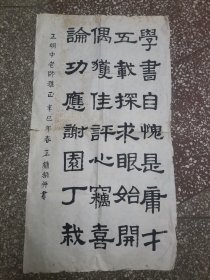 學書自愧是庸才
五載探求眼始開
偶獲佳評心竊喜
論功應謝園丁栽
中老師雅正 辛巳年春 王